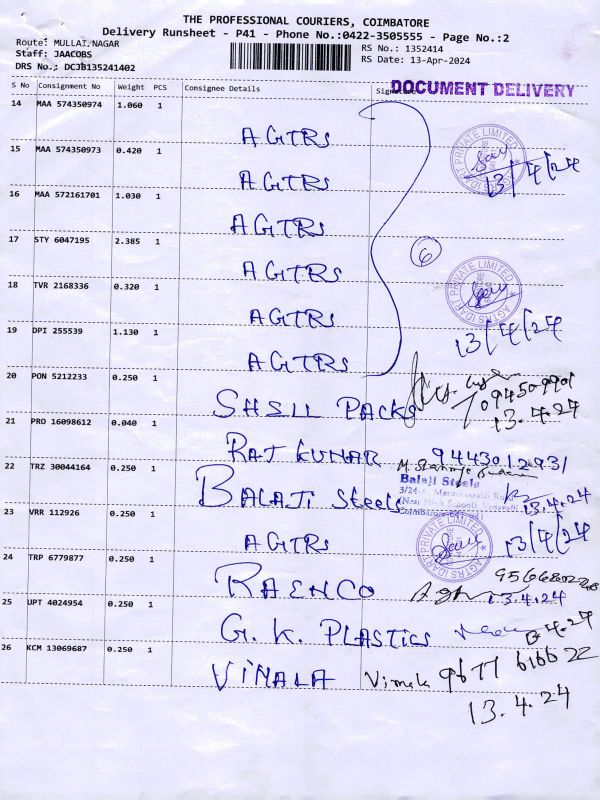 THE PROFESSIONAL COURIERS, COIMBATORE
Delivery Runsheet - P41 - Phone No.:0422-3505555 - Page No.:2
Route: MULLAI,NAGAR
Staff: JAACOBS
DRS No.: DCJB135241402
RS No.: 1352414
RS Date: 13-Apr-2024
DOCUMENT DELIVERY
S No Consignment No Weight PCS Consignee Details Signature
14 MAA 574350974 1.060 1
AGTRS
15 MAA 574350973 0.420 1
AGTRS
13/4/24
16 MAA 572161701 1.030 1
AGTRS
17 STY 6047195 2.385 1
AGTRS
6
18 TVR 2168336 0.320 1
AGTRS
AGTRS IDART PRIVATE LIMITED
13/4/24
19 DPI 255539 1.130 1
AGTRS
20 PON 5212233 0.250 1
SHSLL PACKS
13.4.24
21 PRO 16098612 0.040 1
RAJ KUNAR 9443012931
22 TRZ 30044164 0.250 1
BALAJI Steels
Balaji Steels
13.4.24
23 VRR 112926 0.250 1
AGTRS
AGTRS IDART PRIVATE LIMITED
13/4/24
24 TRP 6779877 0.250 1
RAENCO
13.4.24
25 UPT 4024954 0.250 1
G. K. PLASTICS
26 KCM 13069687 0.250 1
VIMALA Vimala 9677 6166 22
13.4.24